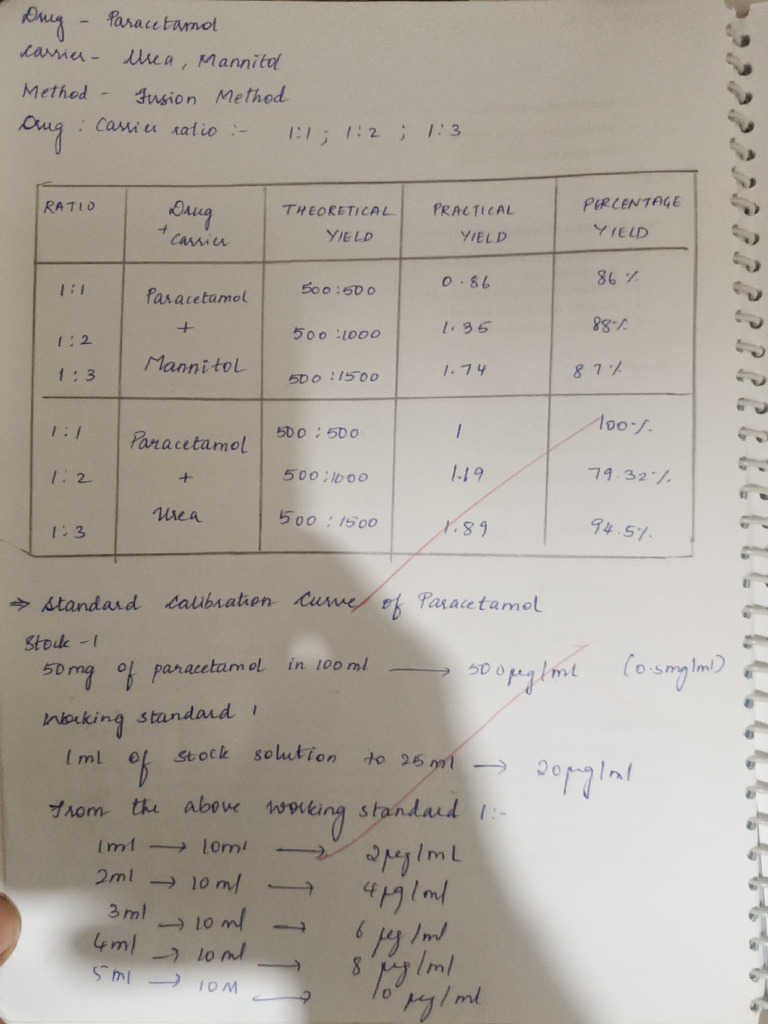 Drug - Paracetamol
Carrier - Urea, Mannitol
Method - Fusion Method
Drug : Carrier ratio :- 1:1 ; 1:2 ; 1:3
RATIO Drug + Carrier THEORETICAL YIELD PRACTICAL YIELD PERCENTAGE YIELD
1:1 Paracetamol 500:500 0.86 86%
1:2 + 500:1000 1.35 88%
1:3 Mannitol 500:1500 1.74 87%
1:1 Paracetamol 500:500 1 100%
1:2 + 500:1000 1.19 79.32%
1:3 Urea 500:1500 1.89 94.5%
⇒ Standard Calibration Curve of Paracetamol
Stock - 1
50mg of paracetamol in 100ml → 500µg/ml (0.5mg/ml)
Working standard 1
1ml of stock solution to 25ml → 20µg/ml
From the above working standard 1:-
1ml → 10ml → 2µg/mL
2ml → 10ml → 4µg/ml
3ml → 10ml → 6 µg/ml
4ml → 10ml → 8 µg/ml
5ml → 10M → 10 µg/ml